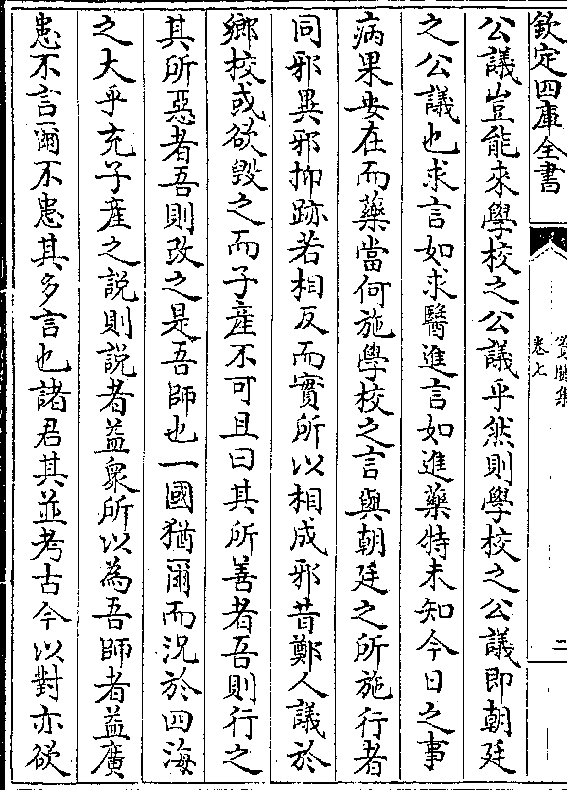 欽定四庫全書
卷七
二
公議豈能來學校之公議乎然則學校之公議即朝廷
之公議也求言如求醫進言如進藥特未知今日之事
病果安在而藥當何施學校之言與朝廷之所施行者
同邪異邪抑跡若相反而實所以相成邪昔鄭人議於
鄉校或欲毀之而子產不可且曰其所善者吾則行之
其所惡者吾則改之是吾師也一國猶爾而況於四海
之大乎充子產之說則說者益衆所以為吾師者益廣
患不言爾不患其多言也諸君其並考古今以對亦欲